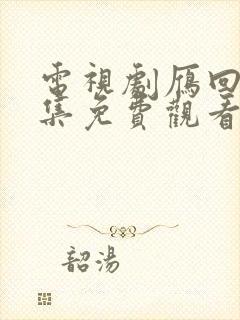 電視劇鴈回
集免費觀看
韶湯